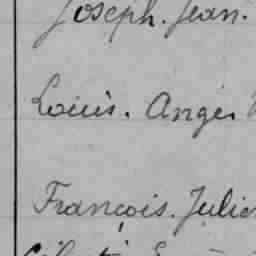 Joseph. Jean.
Louis. Ange.
François. Julien